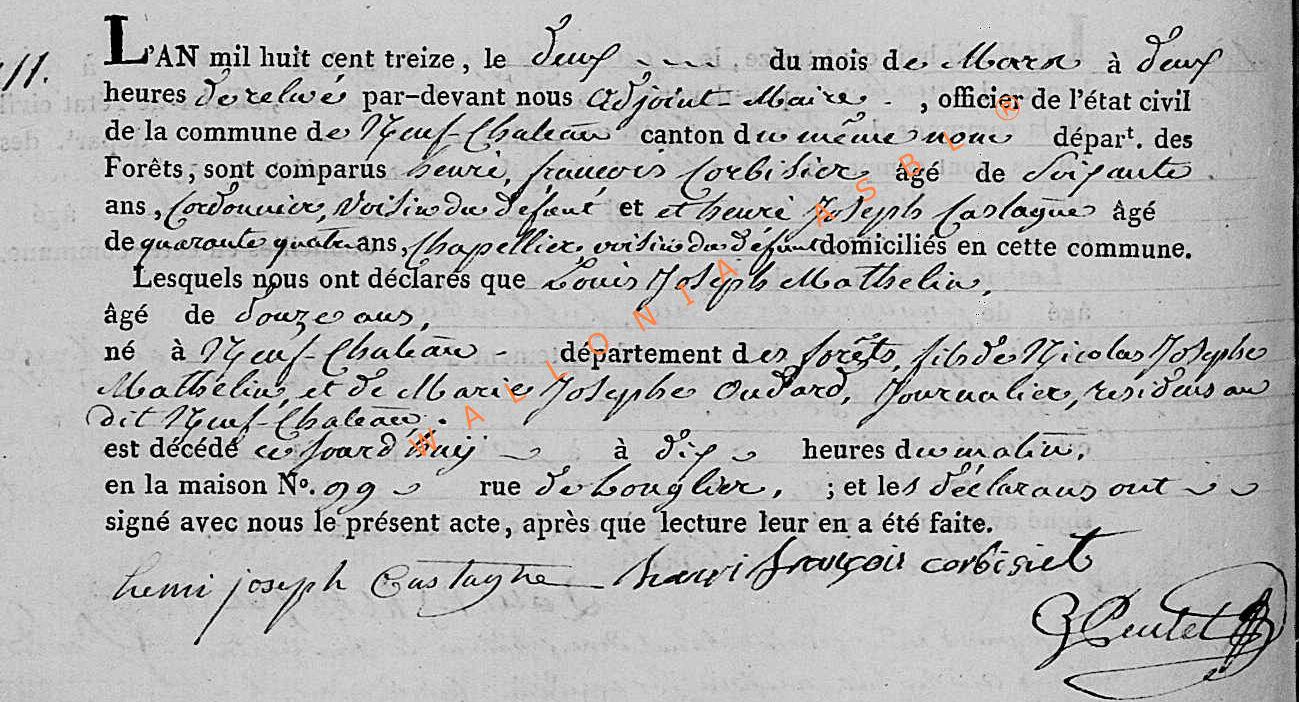 11.
L'AN mil huit cent treize, le deux du mois de Mars à deux
heures de relvé par-devant nous adjoint-Maire , officier de l'état civil
de la commune de Neuf-Chateau canton du même nom départ. des
Forêts, sont comparus henri, françois Corbisier âgé de Soixante
ans, Cordonnier, Voisin du défunt et et henri Joseph Castagne âgé
de quarante quatre ans, Chapellier, voisin du défunt domiciliés en cette commune.
Lesquels nous ont déclarés que Louis Joseph Mathelin,
âgé de douze ans,
né à Neuf-Chateau - département des forêts, fils de Nicolas Josephe
Mathelin, et de Marie Josephe Oudard, Journalier, residens au
dit Neuf-Chateau.
est décédé cejourd'huy à dix heures du matin,
en la maison No. 99 rue de Longlier, ; et les déclarans ont
signé avec nous le présent acte, après que lecture leur en a été faite.
henri joseph Castagne henri françois corbisier
WALLONIA ASBL ®